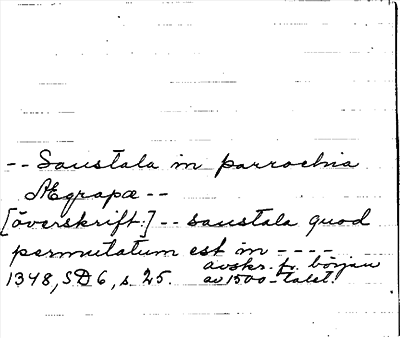 -- Saustala in parrochia
Ægrapæ --
[överskrift:] -- saustala quod
permutatum est in ----
avskr. fr. början
1348, SD6, s. 25. av 1500-talet.